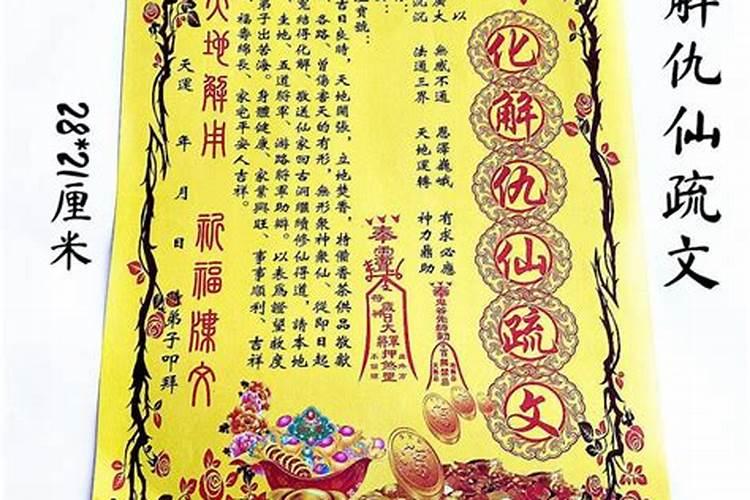 解仇仙疏文
化解仇仙疏文
以
廣大 無感不通 恩澤巍峨 有求必應
沉沉 法通三界 天地運轉 神力鼎助
寶號：
吉日良時，天地開張，立地焚香，特備香茶供品敬獻
各路，曾傷害天的有形，無形衆神衆仙、從即日起
冤結得化解，敬送仙家回古洞繼續修仙得道，請本地
土地、五道將軍、游路將軍助辯。以表爲證望救度
弟子出苦海。身體健康、家業興旺、事事順利、吉祥
福壽綿長、家宅平安人吉祥。
天地解用 祈福陳文
天運 年 月 日 弟子叩拜
28*21厘米